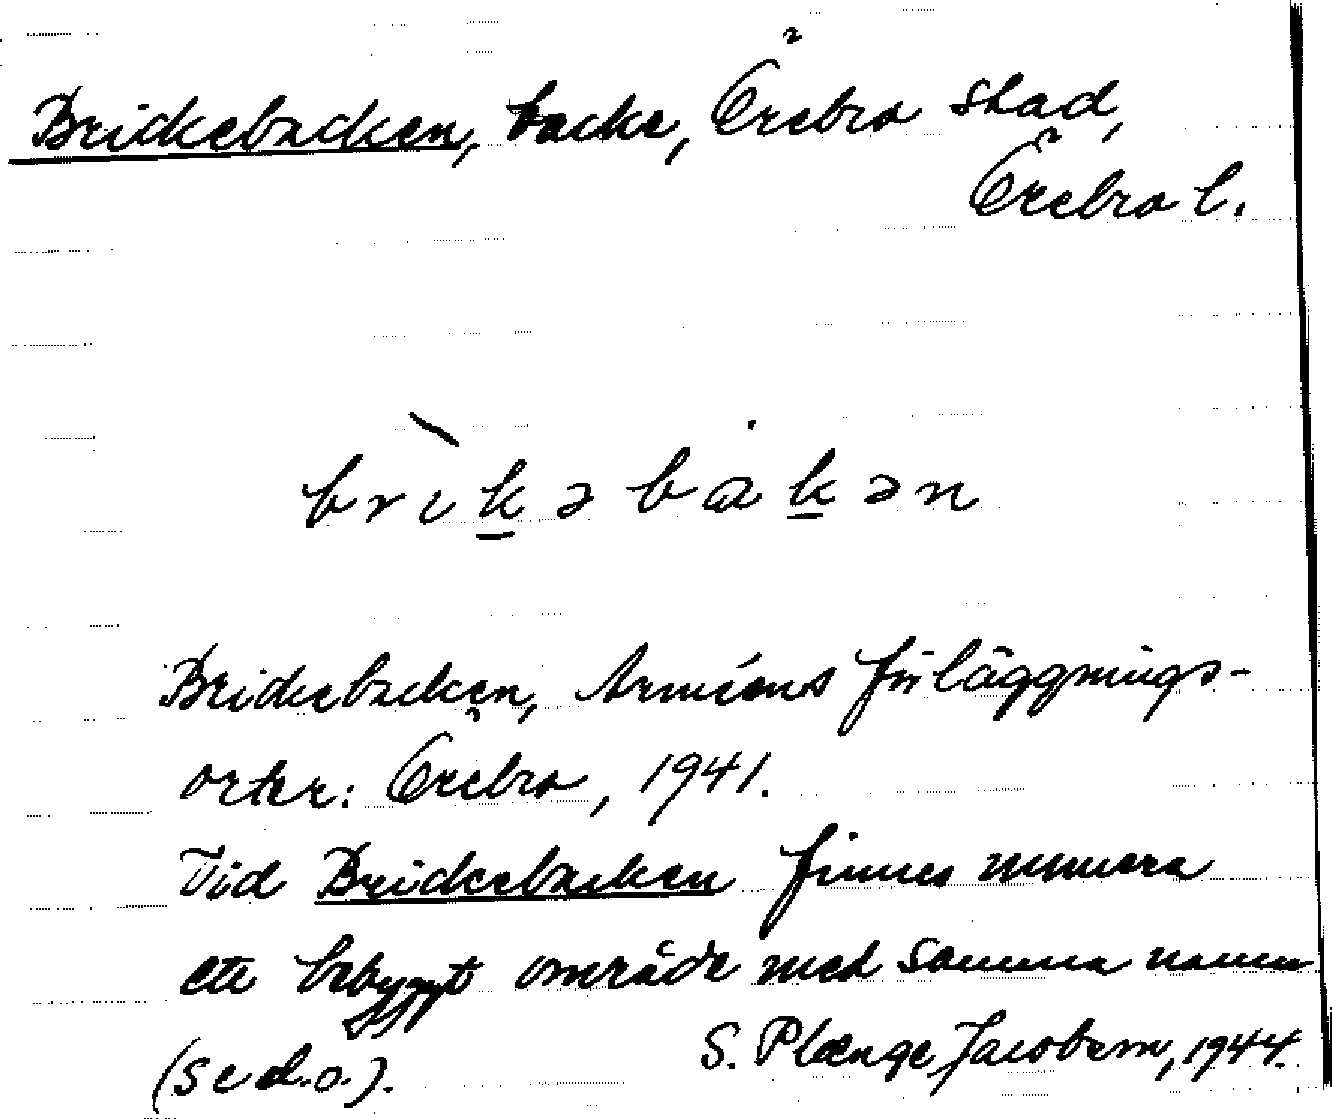 Brickebacken, backe, Örebro stad,
Örebro l.
brìkəbàkən
Brickebacken, Arméens förläggnings-
orter: Örebro, 1941.
Vid Brickebacken finnes numera
ett bebyggt område med samma namn
(se d.o.). S. Plænge Jacobson, 1944.